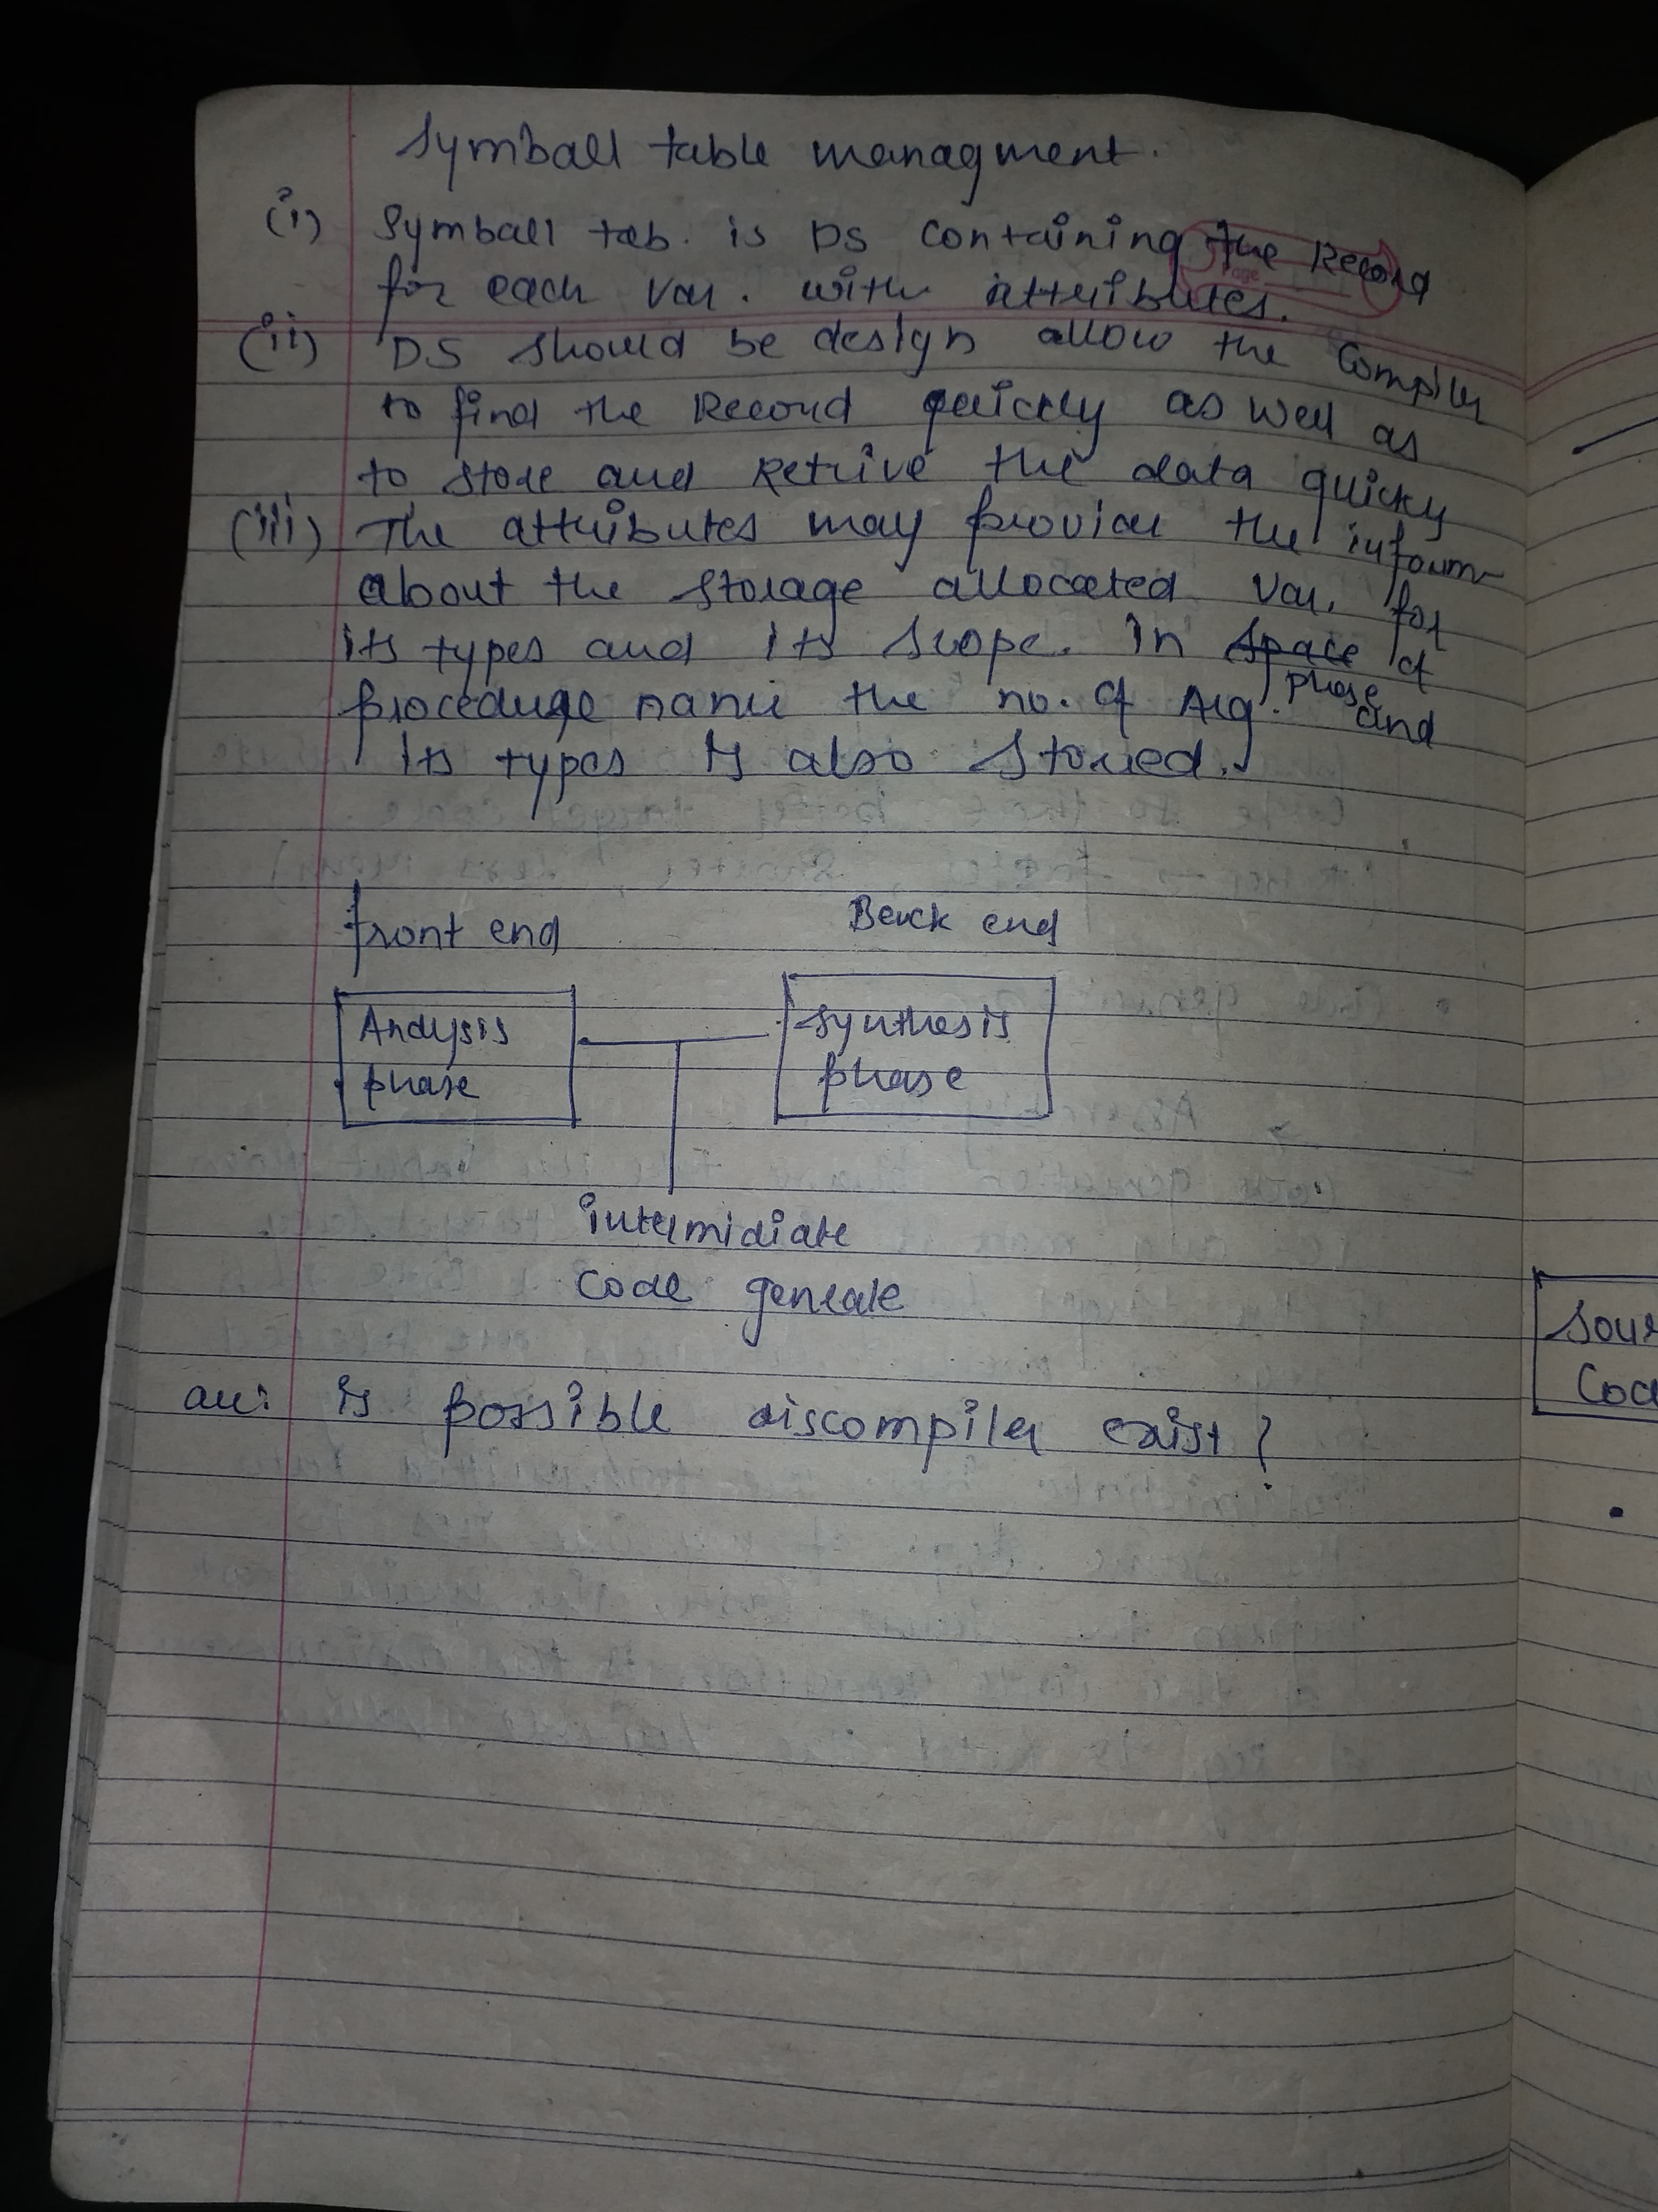 Symball table managment.
(i) Symball tab. is DS containing the Record
for each var. with attributes.
(ii) DS should be design allow the Compiler
to find the Record quickly as well as
to store and Retrive the data quicky
(iii) The attributes may provide the inform
about the storage allocated var. for
its types and its scope. In space of
phase
procedure name the no. of Arg. and
its types is also Stored.
front end Back end
Analysis phase
Synthesis phase
intermidiate
Code generate
is possible discompiler exist?
Sour
Cod